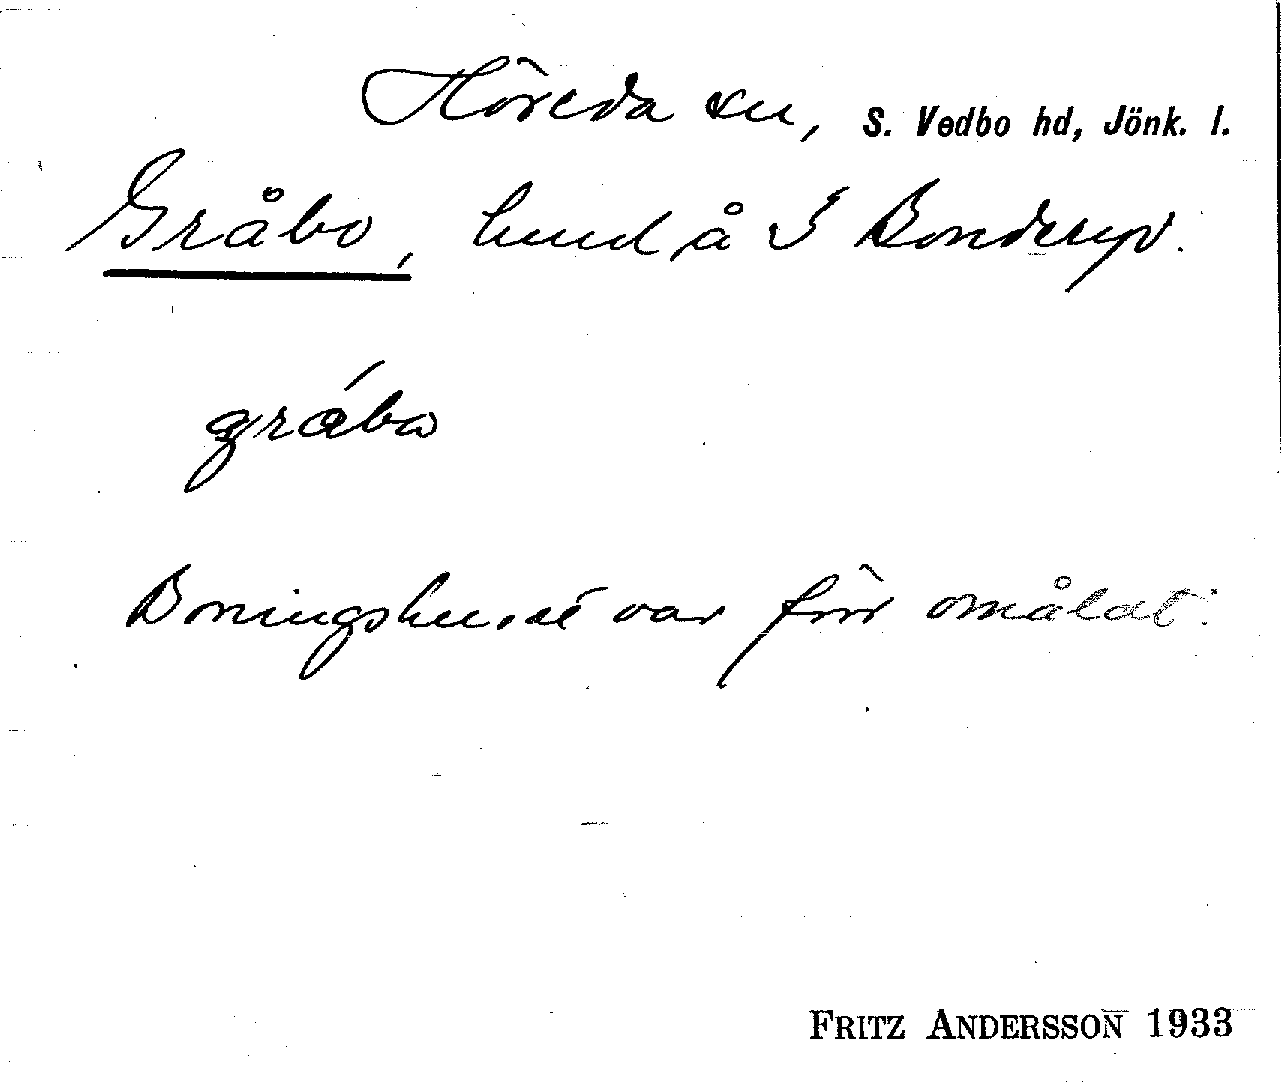 Höreda sn, S. Vedbo hd, Jönk. l.
Gråbo, hmd å S Bonderyd.
gråbo
Boningshuset var förr omålat.
FRITZ ANDERSSON 1933